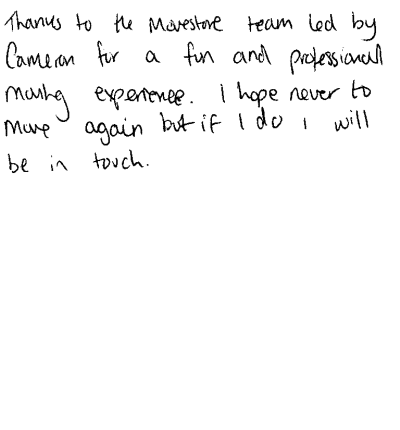 Thanks to the Movestore team led by
Cameron for a fun and professional
moving experience. I hope never to
move again but if I do I will
be in touch.